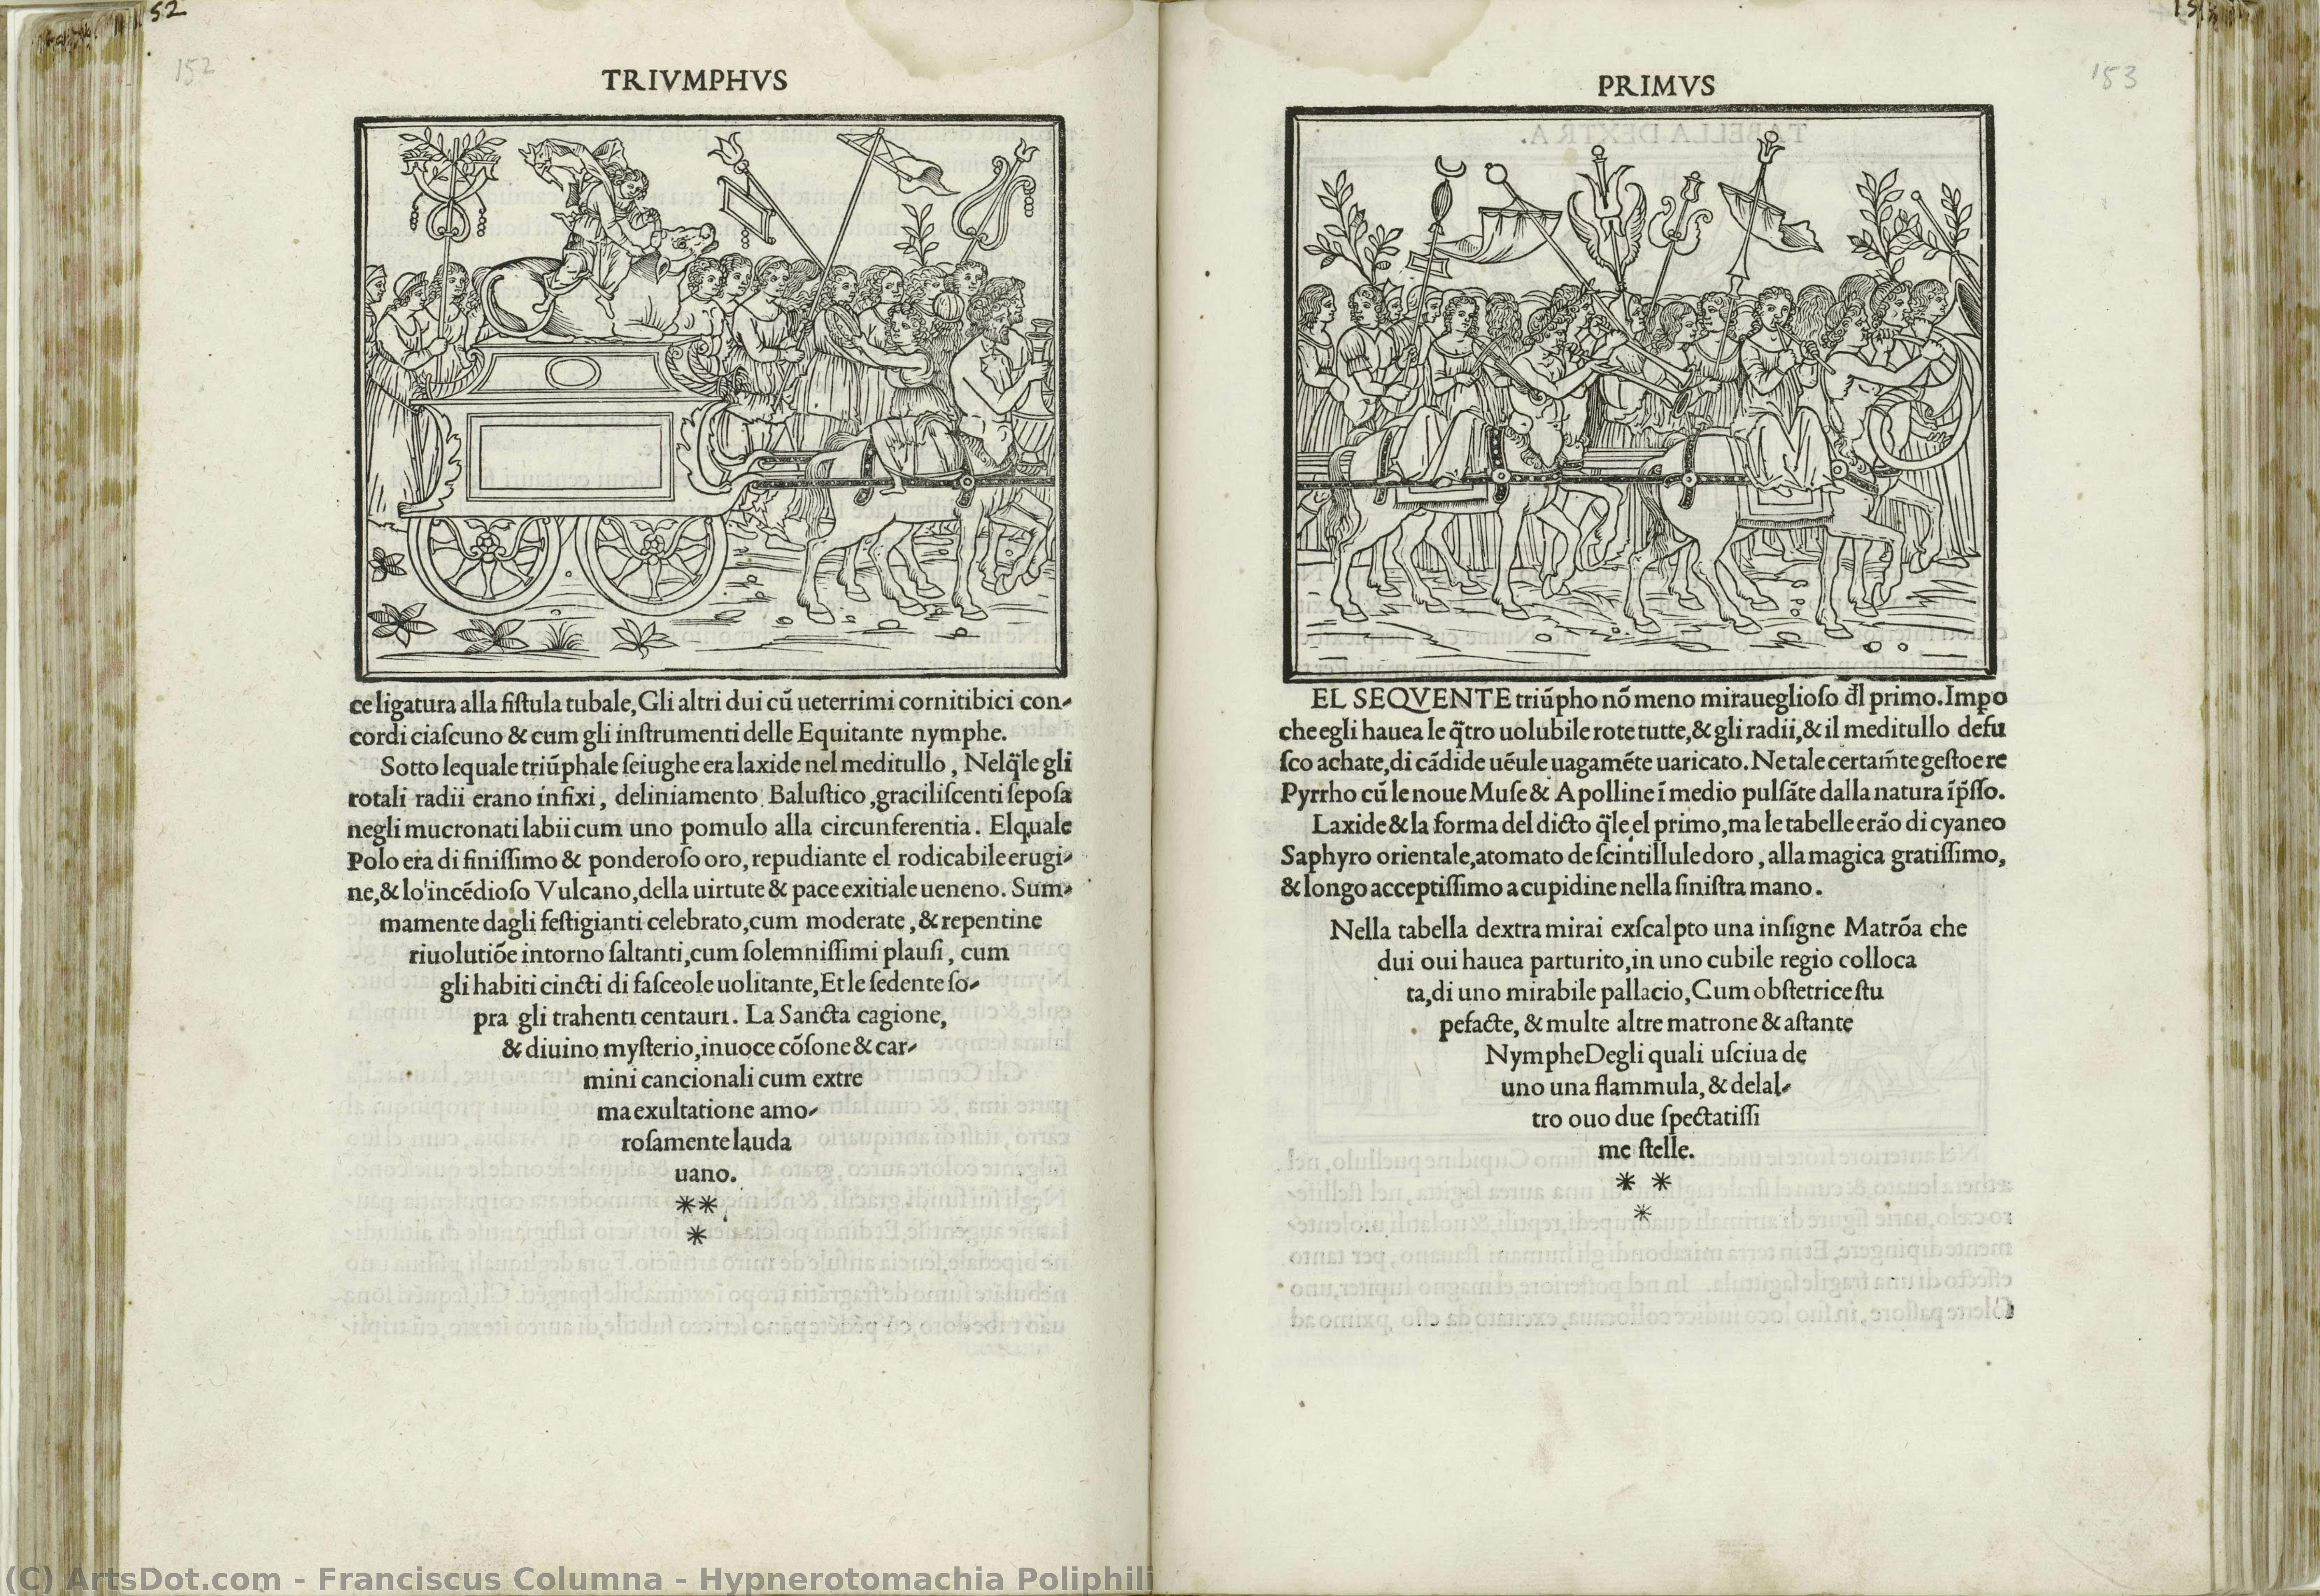 52
152
TRIVMPHVS
ce ligatura alla fiſtula tubale, Gli altri dui cũ ueterrimi cornitibici con-
cordi ciaſcuno & cum gli inſtrumenti delle Equitante nymphe.
Sotto lequale triũphale ſeiughe era laxide nel meditullo, Nelq̃le gli
rotali radii erano infixi, deliniamento Baluſtico, graciliſcenti ſepoſa
negli mucronati labii cum uno pomulo alla circunferentia. Elquale
Polo era di finiſſimo & ponderoſo oro, repudiante el rodicabile erugi-
ne, & lo incẽdioſo Vulcano, della uirtute & pace exitiale ueneno. Sum-
mamente dagli feſtigianti celebrato, cum moderate, & repentine
riuolutiõe intorno ſaltanti, cum ſolemniſſimi plauſi, cum
gli habiti cincti di faſceole uolitante, Et le ſedente ſo-
pra gli trahenti centauri. La Sancta cagione,
& diuino myſterio, inuoce cõſone & car-
mini cancionali cum extre
ma exultatione amo-
roſamente lauda
uano.
**
*
153
PRIMVS
EL SEQVENTE triũpho nõ meno miraueglioſo đl primo. Impo
che egli hauea le q̃tro uolubile rote tutte, & gli radii, & il meditullo defu
ſco achate, di cãdide uẽule uagamẽte uaricato. Ne tale certam̃te geſtoe re
Pyrrho cũ le noue Muſe & Apolline ĩ medio pulſãte dalla natura ĩp̃ſſo.
Laxide & la forma del dicto q̃le el primo, ma le tabelle erão di cyaneo
Saphyro orientale, atomato de ſcintillule doro, alla magica gratiſſimo,
& longo acceptiſſimo a cupidine nella ſiniſtra mano.
Nella tabella dextra mirai exſcalpto una inſigne Matrõa che
dui oui hauea parturito, in uno cubile regio colloca
ta, di uno mirabile pallacio, Cum obſtetrice ſtu
pefacte, & multe altre matrone & aſtante
Nymphe Degli quali uſciua de
uno una flammula, & delal-
tro ouo due ſpectatiſſi
me ſtelle.
* *
*
(C) ArtsDot.com - Franciscus Columna - Hypnerotomachia Poliphili